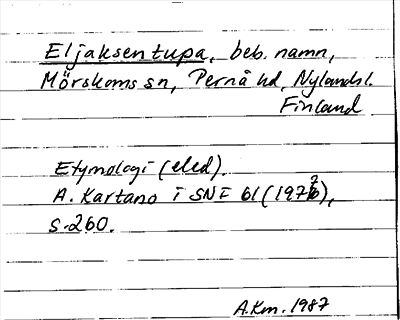 Eljaksentupa, beb. namn,
Mörskoms sn, Pernå hd, Nylands l.
Finland
Etymologi (eled).
A. Kartano i SNF 61 (1972),
s. 260.
A.Km. 1987